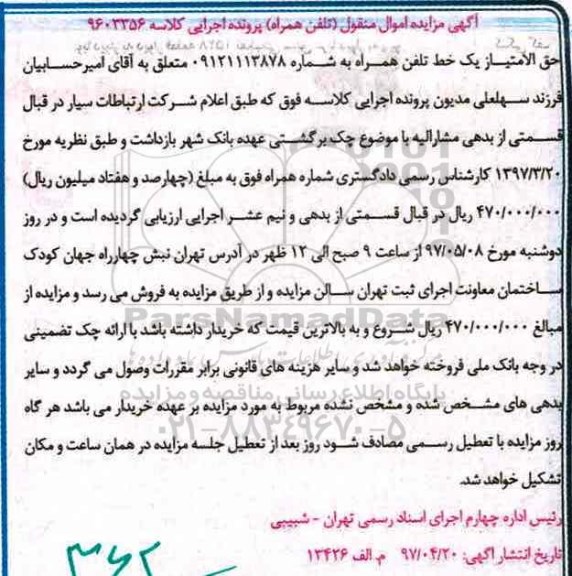 آگهی مزایده اموال منقول (تلفن همراه) پرونده اجرایی کلاسه ۹۶۰۳۳۵۶
حق الامتیاز یک خط تلفن همراه به شماره ۰۹۱۲۱۱۱۳۸۷۸ متعلق به آقای امیرحسابیان
فرزند سهلعلی مدیون پرونده اجرایی کلاسه فوق که طبق اعلام شرکت ارتباطات سیار در قبال
قسمتی از بدهی مشارالیه با موضوع چک برگشتی عهده بانک شهر بازداشت و طبق نظریه مورخ
۱۳۹۷/۳/۲۰ کارشناس رسمی دادگستری شماره همراه فوق به مبلغ (چهارصد و هفتاد میلیون ریال)
۴۷۰/۰۰۰/۰۰۰ ریال در قبال قسمتی از بدهی و نیم عشر اجرایی ارزیابی گردیده است و در روز
دوشنبه مورخ ۹۷/۰۵/۰۸ از ساعت ۹ صبح الی ۱۲ ظهر در آدرس تهران نبش چهارراه جهان کودک
ساختمان معاونت اجرای ثبت تهران سالن مزایده و از طریق مزایده به فروش می رسد و مزایده از
ParsNamadData
مبالغ ۴۷۰/۰۰۰/۰۰۰ ریال شروع و به بالاترین قیمت که خریدار داشته باشد با ارائه چک تضمینی
در وجه بانک ملی فروخته خواهد شد و سایر هزینه های قانونی برابر مقررات وصول می گردد و سایر
پایگاه اطلاع رسانی مناقصه و مزایده
بدهی های مشخص شده و مشخص نشده مربوط به مورد مزایده بر عهده خریدار می باشد هر گاه
۰۲۱-۸۸۳۴۹۶۷۰-۵
روز مزایده با تعطیل رسمی مصادف شود روز بعد از تعطیل جلسه مزایده در همان ساعت و مکان
تشکیل خواهد شد.
رئیس اداره چهارم اجرای اسناد رسمی تهران - شبیبی
تاریخ انتشار آگهی: ۹۷/۰۴/۲۰ م.الف ۱۳۴۲۶